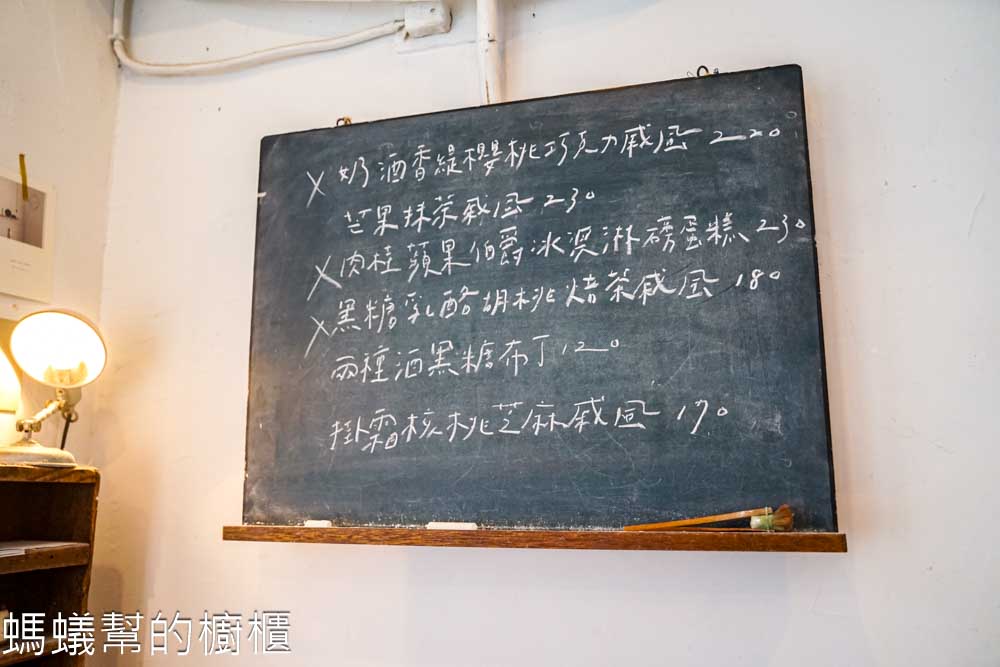 X 奶酒香緹櫻桃巧克力戚風 220
芒果抹茶戚風 230
X 肉桂蘋果伯爵冰淇淋磅蛋糕 230
X 黑糖乳酪胡桃焙茶戚風 180
兩種酒黑糖布丁 120
掛霜核桃芝麻戚風 170
螞蟻幫的櫥櫃